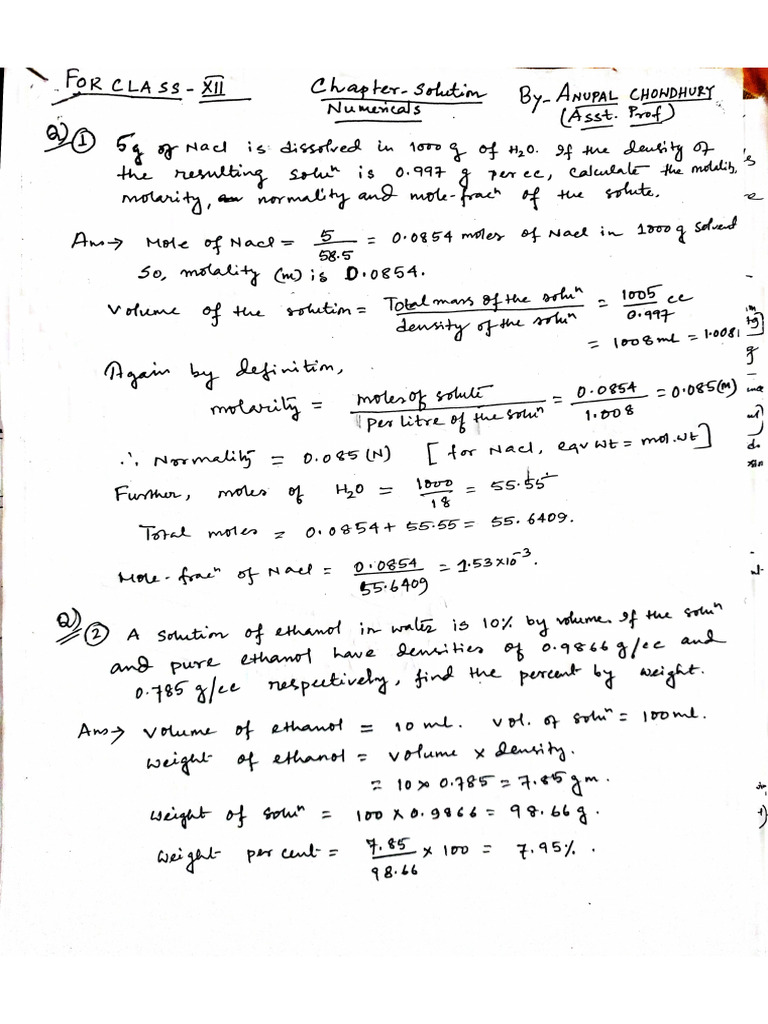 FOR CLASS - XII Chapter - Solution By - ANUPAL CHONDHURY
Numericals (Asst. Prof)
Q) ① 5g of Nacl is dissolved in 1000 g of H₂O. If the density of
the resulting soluⁿ is 0.997 g per cc, calculate the molality,
molarity, normality and mole-fracⁿ of the solute.
Ans → Mole of Nacl = 5/58.5 = 0.0854 moles of Nacl in 1000 g solvent
So, molality (m) is 0.0854.
Volume of the solution = Total mass of the soluⁿ / density of the soluⁿ = 1005/0.997 cc
= 1008 ml = 1.008l
Again by definition,
molarity = moles of solute / per litre of the soluⁿ = 0.0854/1.008 = 0.085 (M)
∴ Normality = 0.085 (N) [for Nacl, eqv wt = mol.wt]
Further, moles of H₂O = 1000/18 = 55.55
Total moles = 0.0854 + 55.55 = 55.6409.
Mole-fracⁿ of Nacl = 0.0854/55.6409 = 1.53×10⁻³.
Q) ② A solution of ethanol in water is 10% by volume. If the soluⁿ
and pure ethanol have densities of 0.9866 g/cc and
0.785 g/cc respectively, find the percent by weight.
Ans → Volume of ethanol = 10 ml. Vol. of soluⁿ = 100 ml.
Weight of ethanol = volume × density.
= 10 × 0.785 = 7.85 gm.
Weight of soluⁿ = 100 × 0.9866 = 98.66 g.
Weight per cent = 7.85/98.66 × 100 = 7.95%.